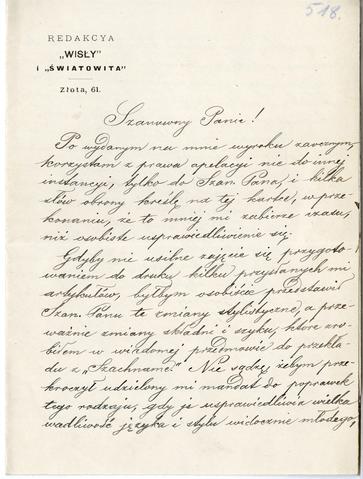 518.
REDAKCYA
„WISŁY”
i „ŚWIATOWITA”
Złota, 61.
Szanowny Panie!
Po wydanym na mnie wyroku zaocznym,
korzystam z prawa apelacyi nie do innej
instancyi, tylko do Szan. Pana, i kilka
słów obrony kreślę na tej kartce, w prze-
konaniu, że to mniej mi zabierze czasu,
niż osobiste usprawiedliwienie się.
Gdyby nie usilne zajęcie się przygoto-
waniem do druku kilku przysłanych mi
artykułów, byłbym osobiście przedstawił
Szan. Panu te zmiany stylistyczne, a prze-
ważnie zmiany składni i szyku, które zro-
biłem w wiadomej przedmowie do przekła-
du z „Szachname.” Nie sądzę żebym prze-
kroczył udzielony mi mandat do poprawek
tego rodzaju, gdy je usprawiedliwia wielka
wadliwość języka i stylu widocznie młodego,